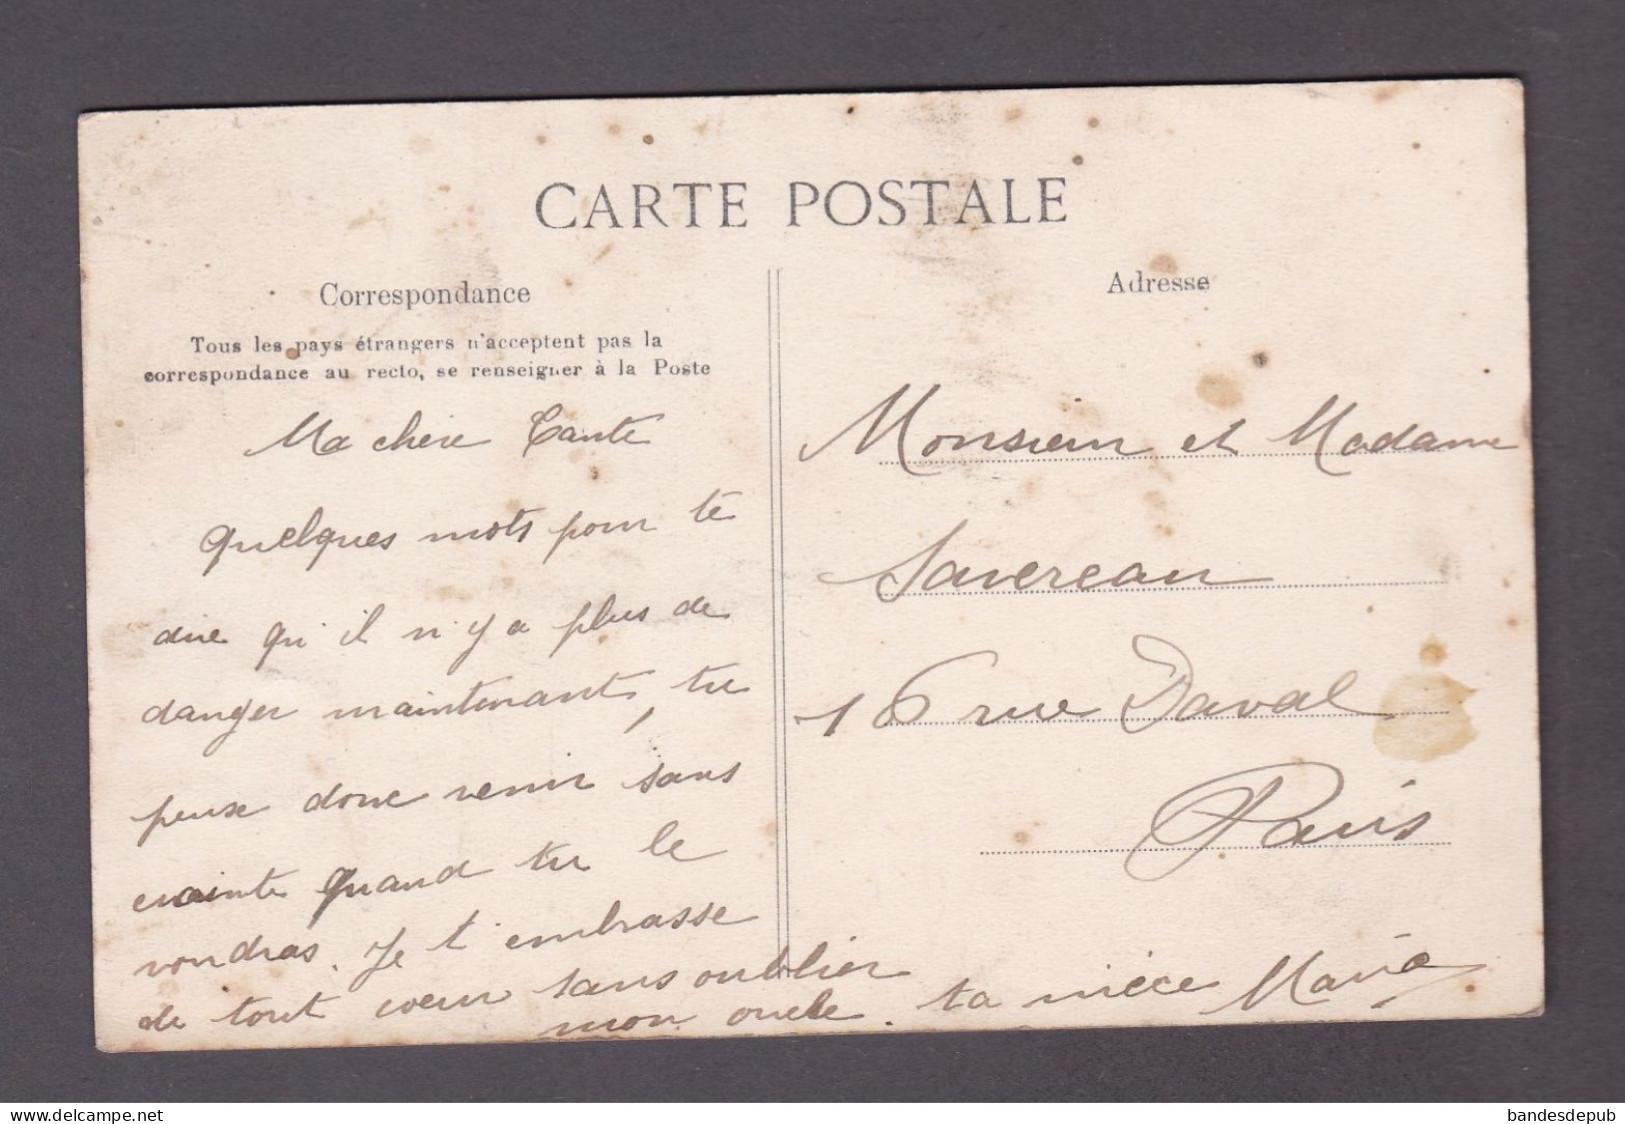 CARTE POSTALE
Correspondance
Tous les pays étrangers n'acceptent pas la
correspondance au recto, se renseigner à la Poste
Ma chere Tante
quelques mots pour te
dire qu'il n'y a plus de
danger maintenant, tu
peux donc venir sans
crainte quand tu le
voudras. Je t'embrasse
de tout coeur sans oublier
mon oncle. ta nièce Maria
Adresse
Monsieur et Madame
Savereau
16 rue Daval
Paris
www.delcampe.net
bandesdepub